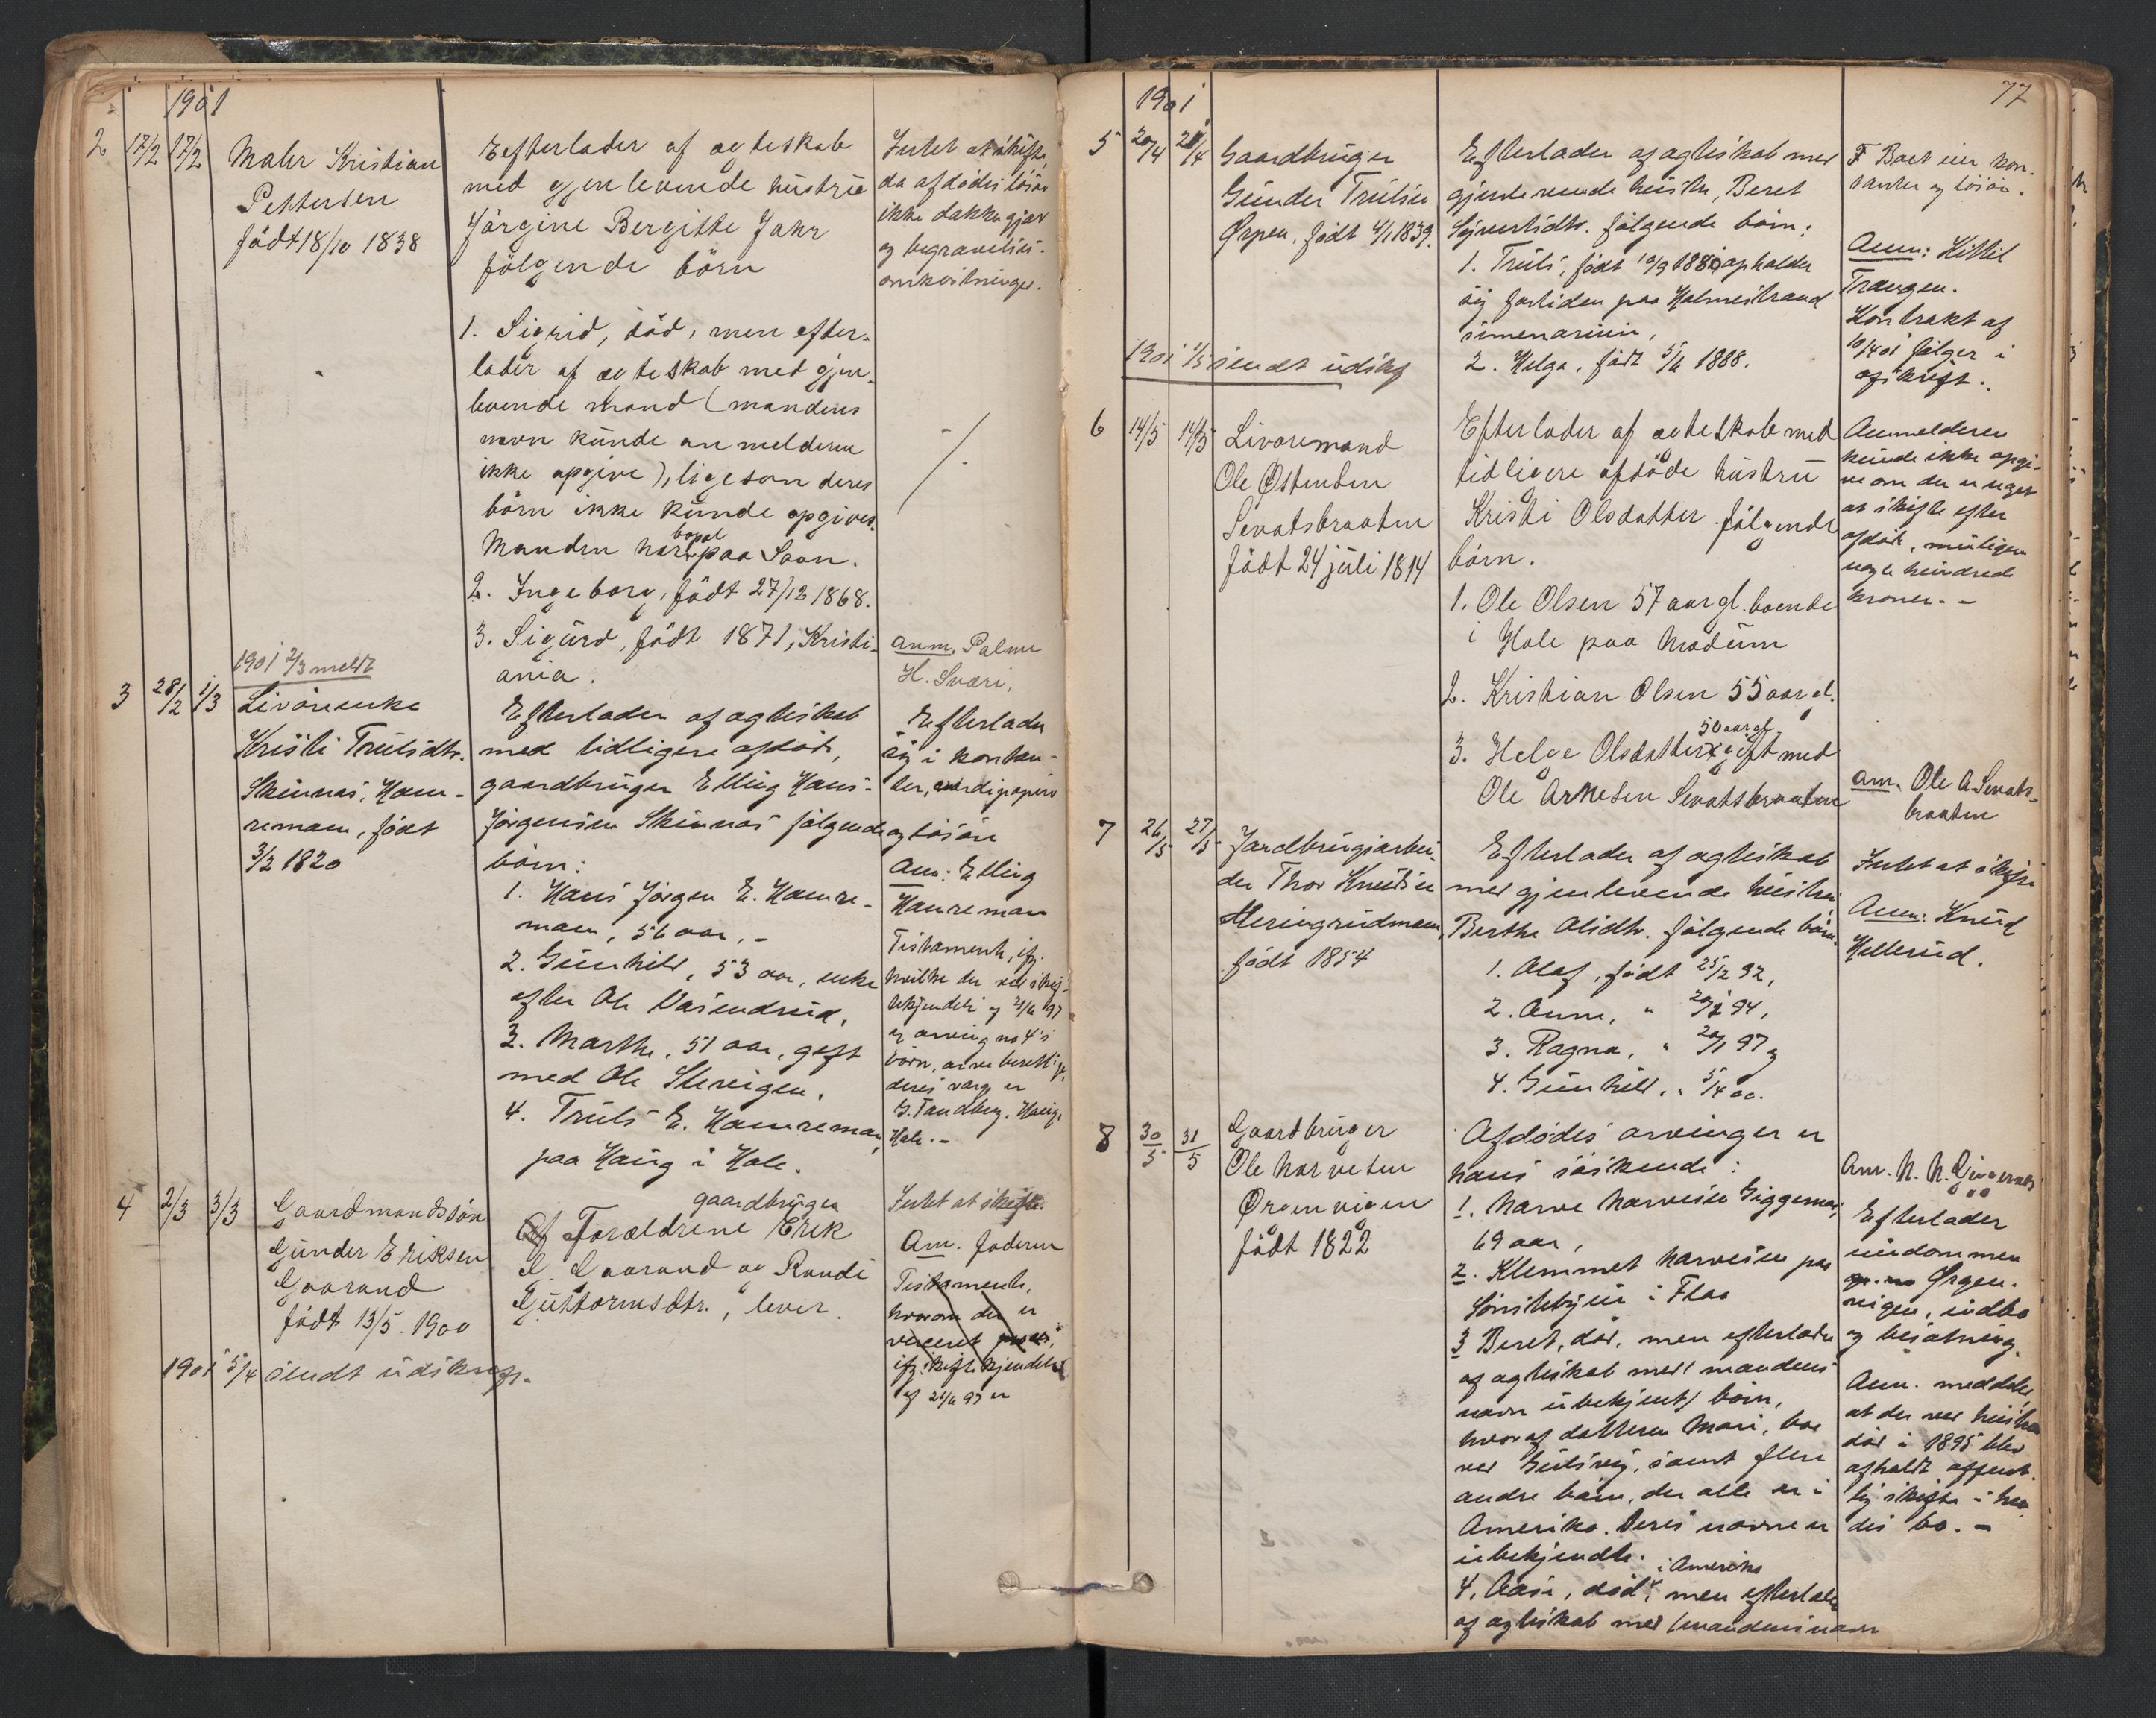 1901
2 17/2 17/2
Maler Kristian
Pettersen
født 18/10 1838
Efterlader af ægteskab
med gjenlevende hustru
Jørgine Bergitte Jahr
følgende børn
1. Sigrid, død, men efter-
lader af ægteskab med gjen-
levende mand (mandens
navn kunde anmelderen
ikke opgive), ligesom deres
børn ikke kunde opgives.
Manden har bopæl paa Svon.
2. Ingeborg, født 27/12 1868.
3. Sigurd, født 1871, Kristi-
ania.
Intet at skifte,
da afdødes løsøre
ikke dækker gjæld
og begravelses-
omkostninger.
anm. Palme
H. Svari.
1901 2/3 meldt
3 28/2 1/3
Livøreenke
Kristi Trulsdtr.
Skinnas, Ham-
remoen, født
3/2 1820
Efterlader af ægteskab
med tidligere afdøde,
gaardbruger Elling Hans-
Jørgensen Skinnas følgende
børn:
1. Hans Jørgen E. Hamre-
moen, 56 aar, -
2. Gunhild, 53 aar, enke
efter Ole Vasendrud,
3. Marthe, 51 aar, gift
med Ole
4. Truls E. Hamremoen,
paa Haug i Hole.
Efterlader
sig i kontan-
ter, værdipapirer
og løsøre
Anm: Elling
Hamremoen
Testamente, ifg.
hvilke der ved skif-
tekjendelse af 21/6 97
er arving no 4's
børn, arveberettig.
deres værge er
G. Tandberg, Haug,
Hole. -
4 2/3 3/3
Gaardmandssøn
Gunder Eriksen
Gaarand
født 13/5. 1900
1901 5/4 sendt udskrift.
Af Forældrene gaardbruger Erik
G. Gaarand og Randi
Guttormsdtr., lever.
Intet at skifte.
Anm. faderen
Testamente,
hvorom der er
ifg. skiftekjendelse
af 21/6 97 er
77
1901
5 20/4 20/4
Gaardbruger
Gunder Trulsen
Ørpen, født 4/1 1839.
1901 1/5 sendt udskr
Efterlader af ægteskab med
gjenlevende hustru, Beret
Syvertsdtr. følgende børn:
1. Truls, født 10/9 1880, opholder
sig fortiden paa Holmestrand
simenarium,
2. Helga, født 5/6 1888.
F Boet eier kon-
tanter og løsøre.
Anm: Kittil
Trangen.
Kontrakt af
10/4 01 følger i
afskrift.
6 14/5 14/5
Livøremand
Ole Østensen
Sevatsbraaten
født 24 juli 1814
Efterlader af ægteskab med
tidligere afdøde hustru
Kristi Olsdatter følgende
børn.
1. Ole Olsen 57 aar gl. boende
i Hole paa Modum
2. Kristian Olsen 55 aar gl.
3. Helge Olsdatter 50 aar gl. gift med
Ole Arnesen Sevatsbraaten
Anmelderen
kunde ikke opgi-
ve om der er noget
at skifte efter
afdøde, muligens
nogle hundrede
kroner. -
anm. Ole A. Sevats-
braaten
7 26/5 27/5
Jordbrugsarbei-
der Thor Knudsen
Meringrudmoen,
født 1854
Efterlader af ægteskab
med gjenlevende hustru
Berthe Olsdtr. følgende børn.
1. Olaf, født 25/2 92,
2. Anne, " 20/2 94,
3. Ragna, " 20/1 97 og
4. Gunhild, " 5/4 00.
Intet at skifte
Anm: Knud
Hellerud.
8 30/5 31/5
Gaardbruger
Ole Narvesen
Ørgenvigen
født 1822
Afdødes arvinger er
hans søskende:
1. Narve Narvesen Giggernes,
69 aar,
2. Klemmet Narvesen paa
Sønstebyen i Flaa
3 Beret, død, men efterlader
af ægteskab med (mandens
navn ubekjent) børn,
hvoraf datteren Mari, bor
ved Gulsvig, samt flere
andre børn, der alle er i
Amerika. Deres navne er
ubekjendte.
4. Aase, død i Amerika, men efterlader
af ægteskab med (mandens navn
Anm. N. N. Giggernes
Efterlader
eiendommen
Ørgen-
vigen, indbo
og besætning.
Anm. meddeler
at der ved hustrus
død i 1895 blev
afholdt offent-
lig skifte i hen-
des bo. -